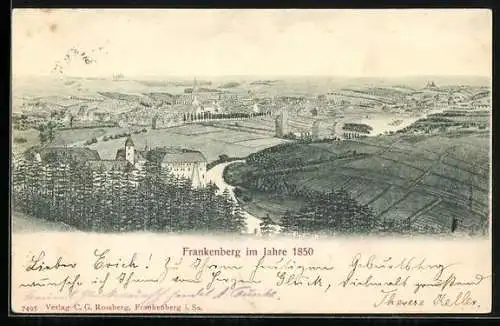 Frankenberg im Jahre 1850
Lieber Erich! Zu Ihrem heutigen Geburtstag
wünsche ich Ihnen von Herzen Glück, Vielmals grüssend
Therese Keller,
7495 Verlag C. G. Rossberg, Frankenberg i. Sa.